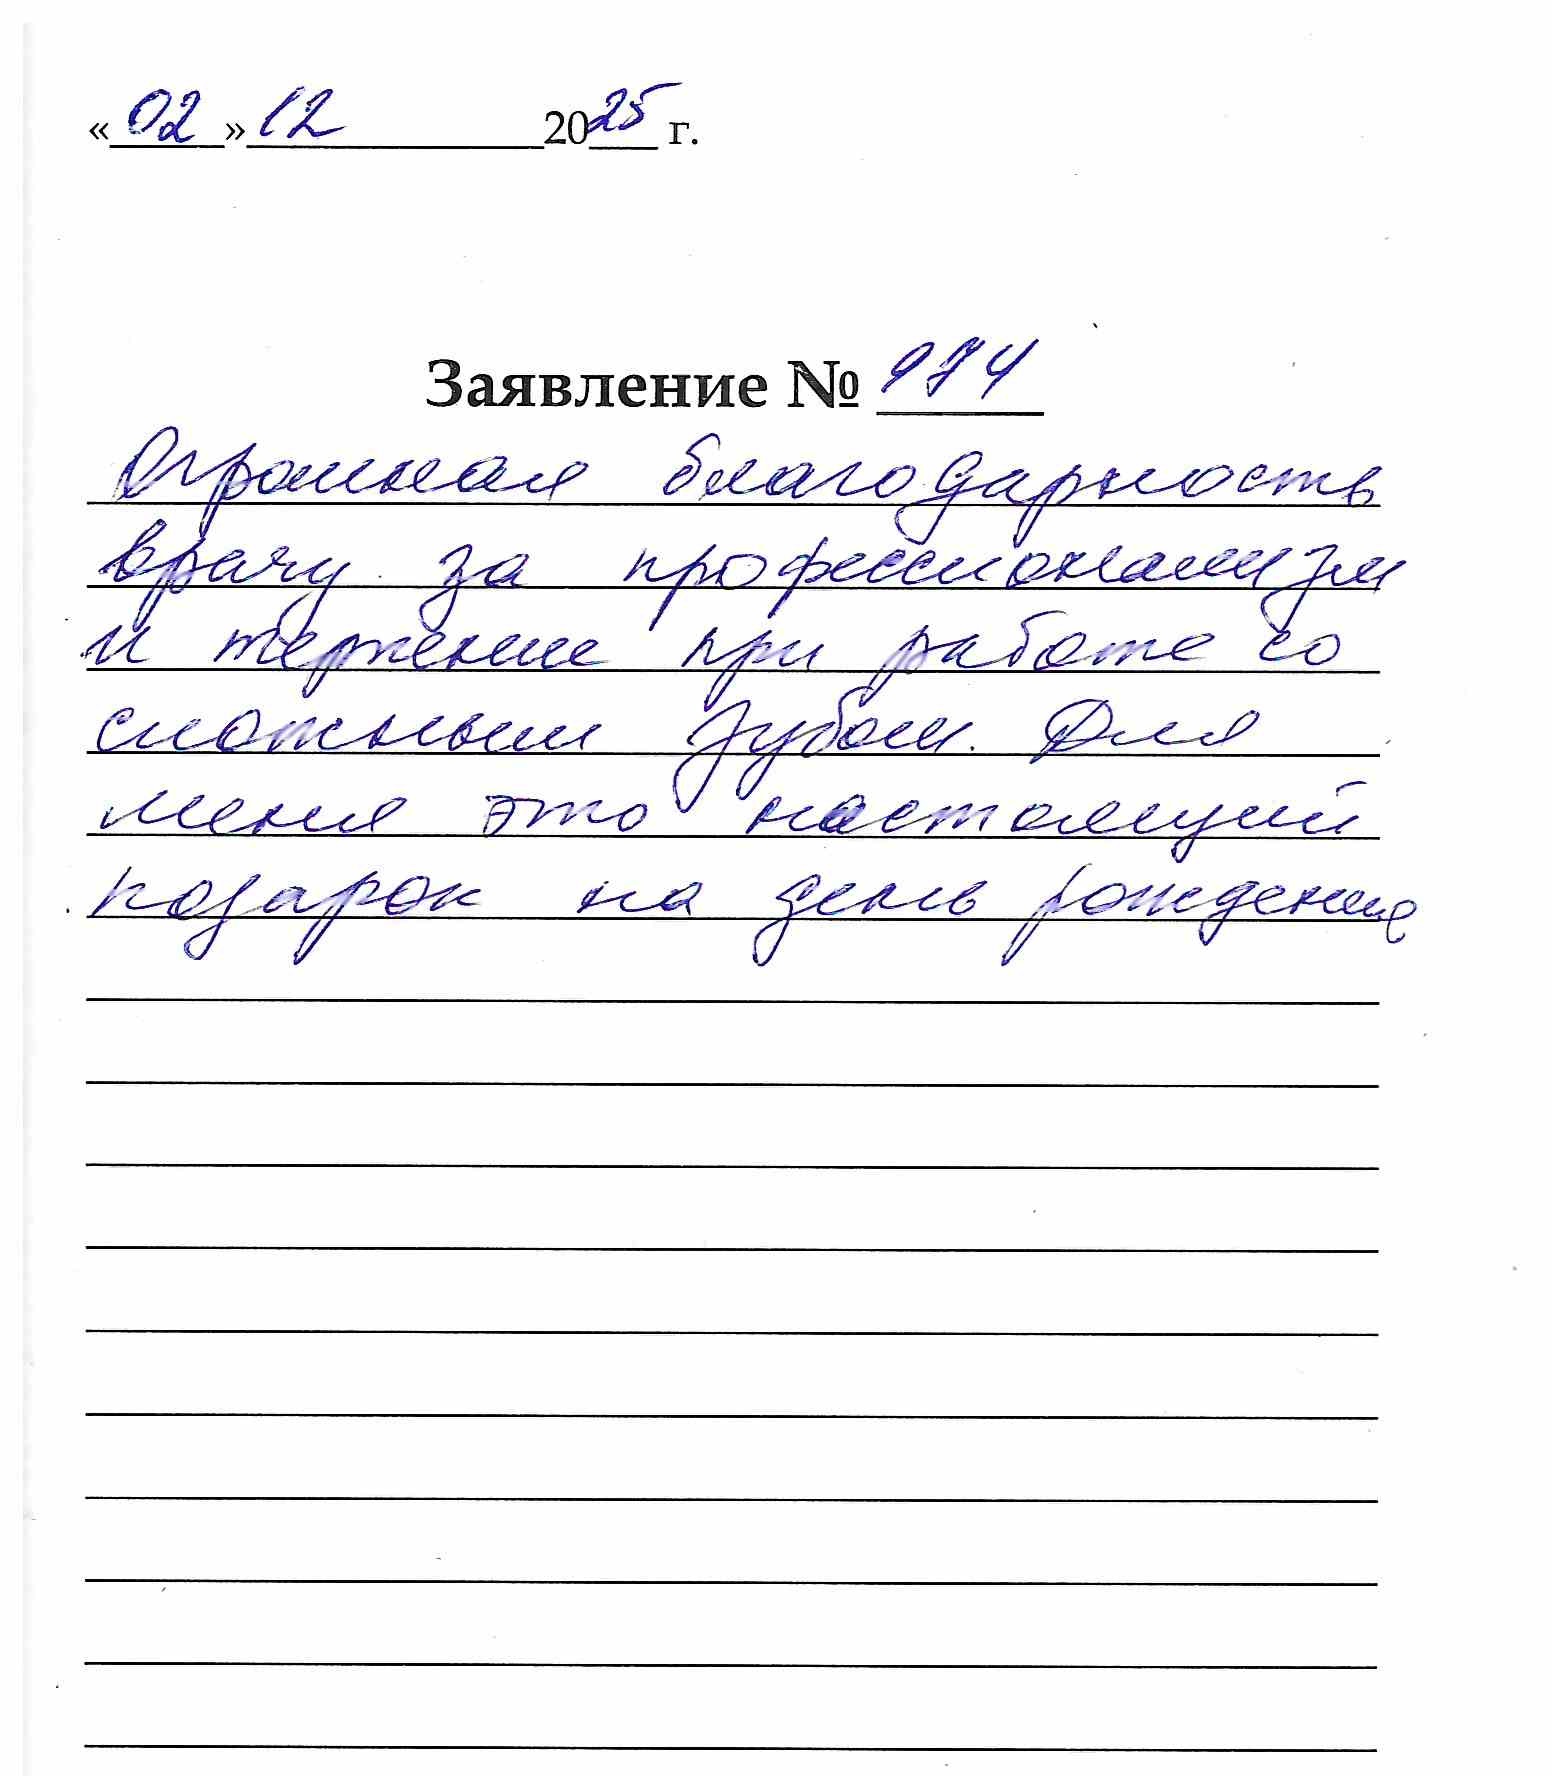 «02» 12 2025 г.
Заявление № 974
Огромная благодарность
врачу за профессионализм
и терпение при работе со
сложным зубом. Для
меня это настоящий
подарок на день рождения